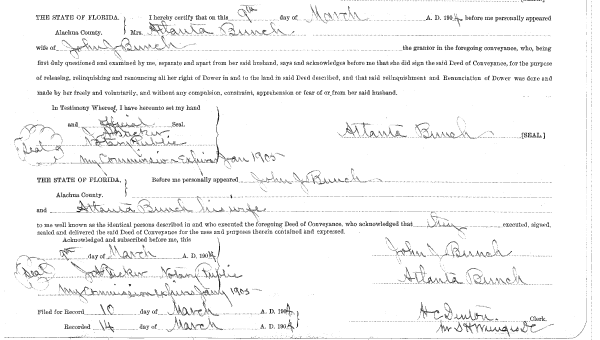 THE STATE OF FLORIDA. I hereby certify that on this 9th day of March A. D. 1904 before me personally appeared
Alachua County. Mrs. Atlanta Bunch.
wife of John J Bunch the grantor in the foregoing conveyance, who, being
first duly questioned and examined by me, separate and apart from her said husband, says and acknowledges before me that she did sign the said Deed of Conveyance, for the purpose
of releasing, relinquishing and renouncing all her right of Dower in and to the land in said Deed described, and that said relinquishment and Renunciation of Dower was done and
made by her freely and voluntarily, and without any compulsion, constraint, apprehension or fear of or from her said husband.
In Testimony Whereof, I have hereunto set my hand
and official Seal.
Decker Atlanta Bunch [SEAL.]
Seal Notary Public
My Commission Expires Jan 1905
THE STATE OF FLORIDA. Before me personally appeared John J Bunch
Alachua County.
and Atlanta Bunch his wife
to me well known as the identical persons described in and who executed the foregoing Deed of Conveyance, who acknowledged that they executed, signed,
sealed and delivered the said Deed of Conveyance for the uses and purposes therein contained and expressed.
Acknowledged and subscribed before me, this
9th day of March A. D. 1904 John J Bunch
Seal Decker Notary Public Atlanta Bunch
My Commission Expires Jany 1905
Filed for Record 10 day of March A. D. 1904 H C Denton Clerk.
Recorded 14 day of March A. D. 1904